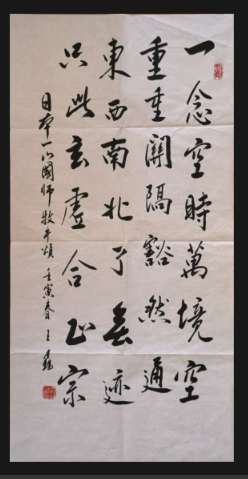 一念空時萬境空
重重關隔豁然通
東西南北了無迹
只此玄虛合正宗
日本一山國師牧牛頌 壬寅春 王